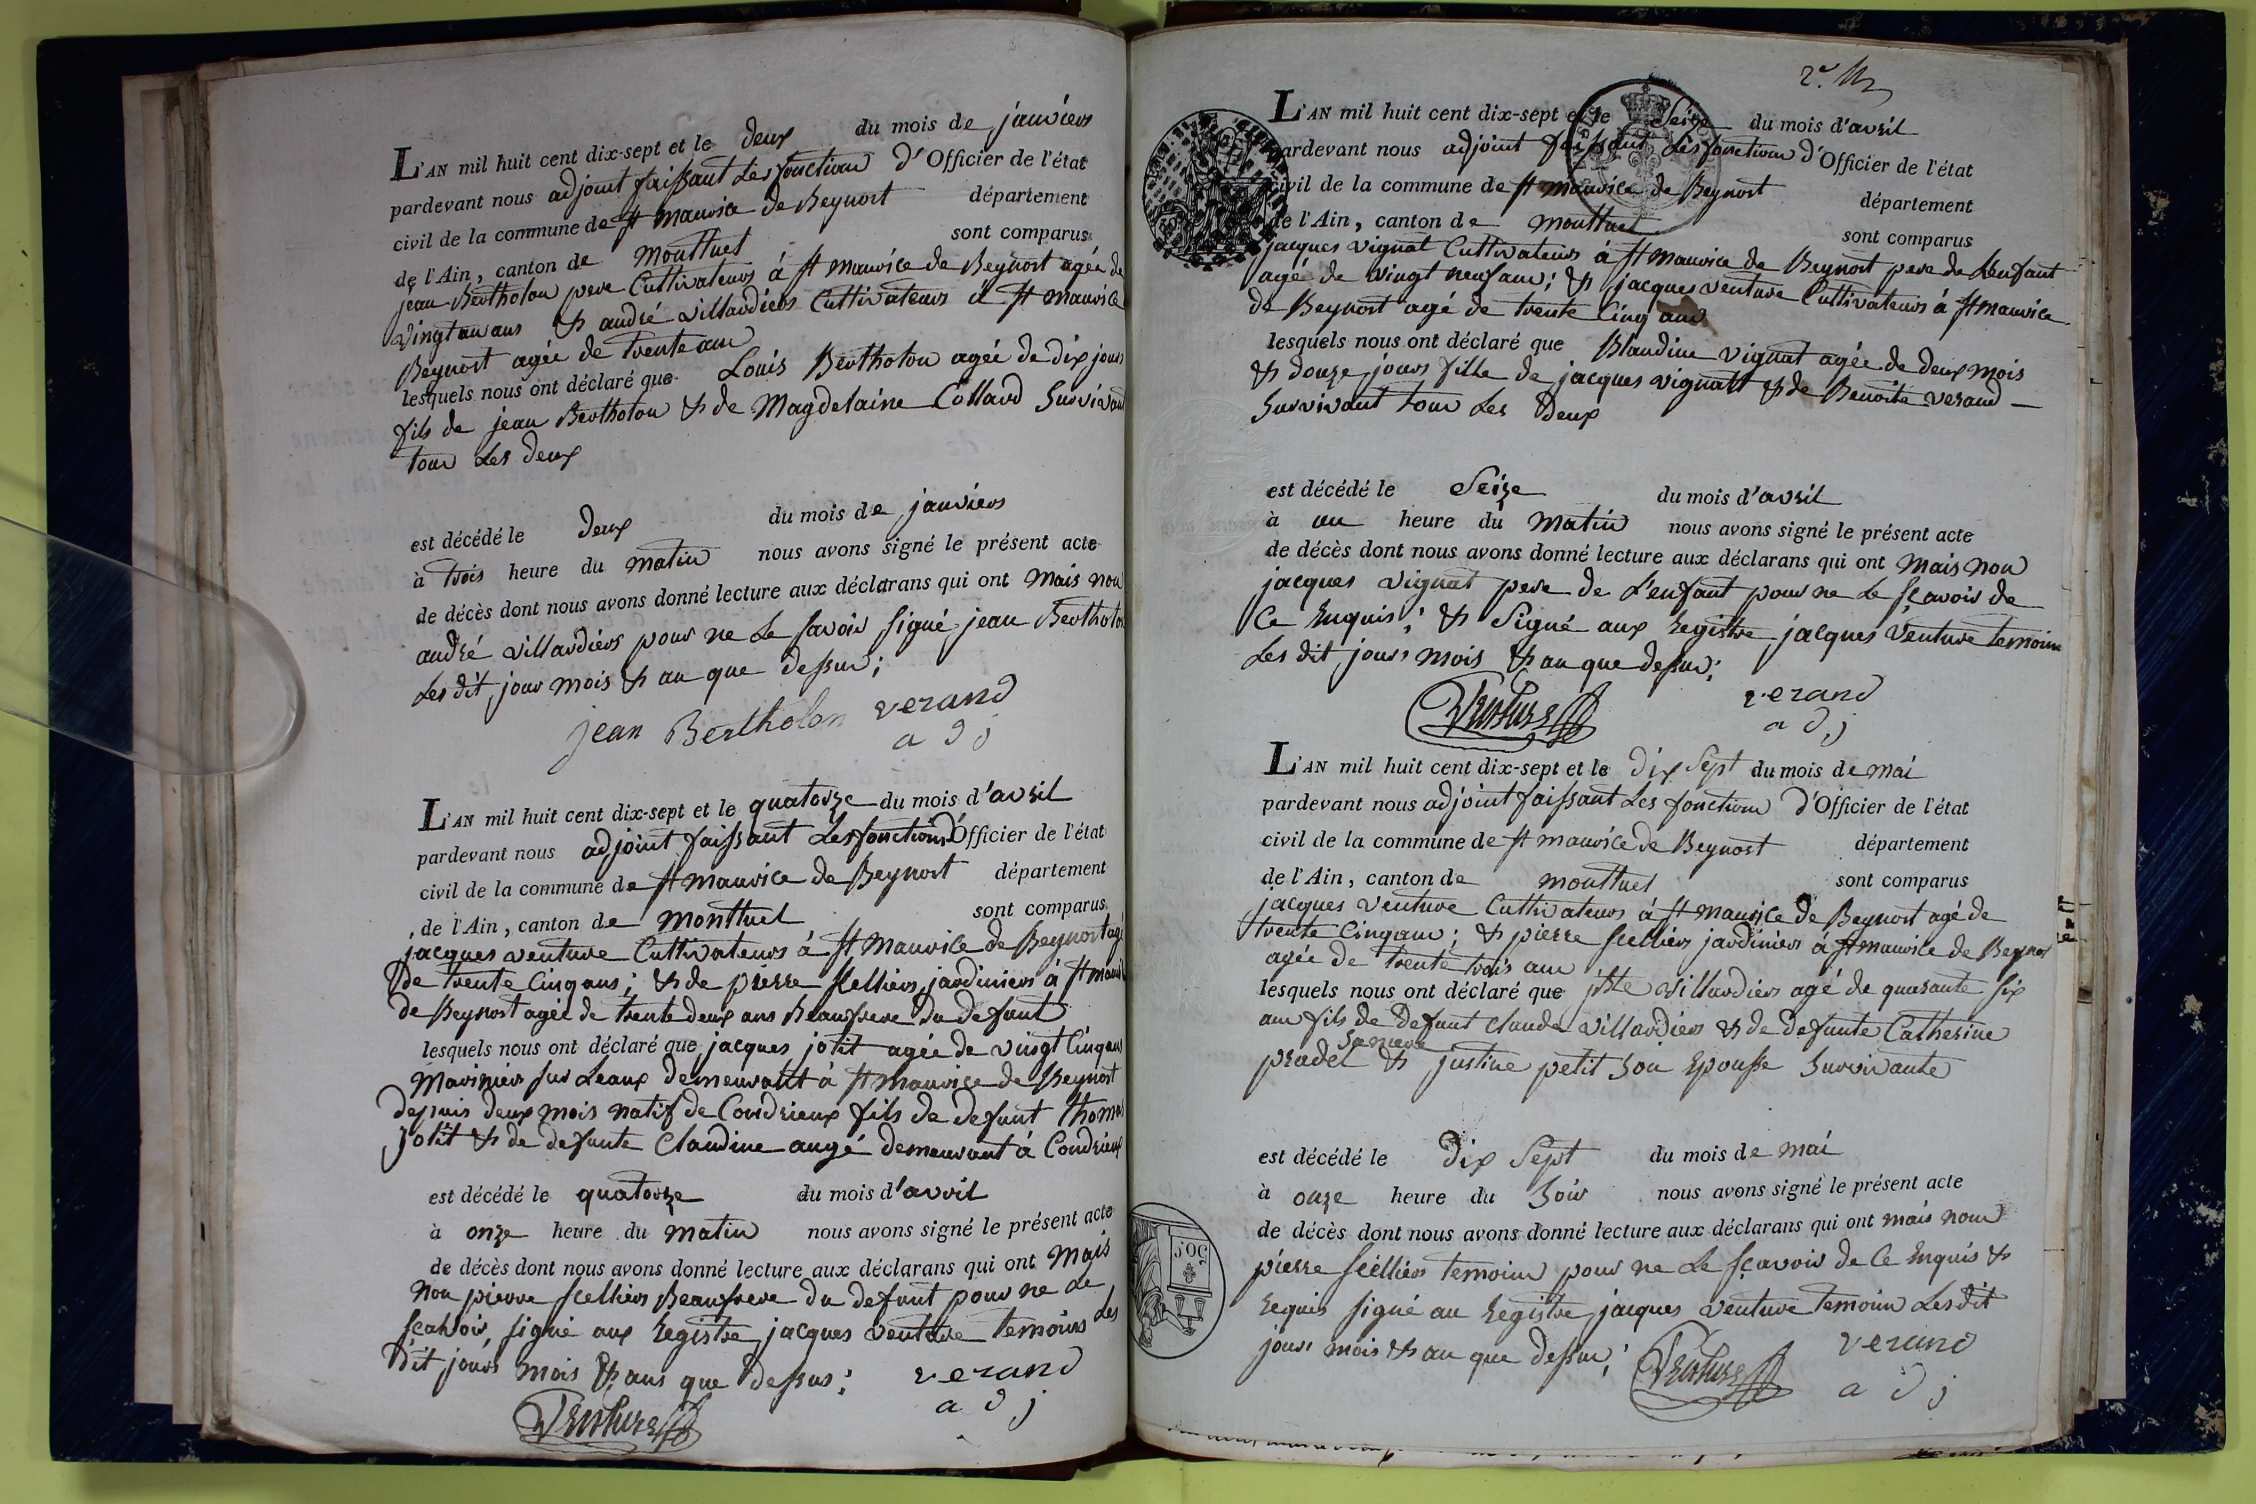 L'AN mil huit cent dix-sept et le deux du mois de janviers
pardevant nous adjoint faissant les fonction d'Officier de l'état
civil de la commune de st maurice de Beynost département
de l'Ain, canton de montluel sont comparus
jean Bertholon pere Cultivateurs à st maurice de Beynost agée de
vingt un ans & andré villardiers Cultivateurs à st maurice
Beynost agée de trente ans
lesquels nous ont déclaré que Louis Bertholon agée de dix jours
fils de jean Bertholon & de Magdelaine Collard Survivant
tous Les deux
est décédé le deux du mois de janviers
à trois heure du matin nous avons signé le présent acte
de décès dont nous avons donné lecture aux déclarans qui ont mais non
andré villardiers pour ne Le savoir signé jean Bertholon
Les dit jour mois & an que dessus;
jean Bertholon verand
adj
L'AN mil huit cent dix-sept et le quatorze du mois d'avril
pardevant nous adjoint faissant Les fonctions d'Officier de l'état
civil de la commune de st maurice de Beynost département
de l'Ain, canton de montluel sont comparus
jacques venture Cultivateurs à st maurice de Beynost agé
De trente Cinq ans; & de pierre scelliers jardiniers à st mauri
de Beynost agée de trente deux ans Beaufrere du defunt
lesquels nous ont déclaré que jacques jotit agée de vingt Cinq ans
Mariniers sur Leaux demeurant à st maurice de Beynost
depuis deux mois natif de Condrieux fils de defunt thomas
jotit & de defunte Claudine augé demeurant à Condrieux
est décédé le quatorze du mois d'avril
à onze heure du matin nous avons signé le présent acte
de décès dont nous avons donné lecture aux déclarans qui ont mais
non pierre scelliers Beaufrere du defunt pour ne Le
sçahvoir, signé aux Registre jacques venture temoins Les
dit jours mois & ans que dessus;
verand
Venture adj
2e
L'AN mil huit cent dix-sept et le Seize du mois d'avril
pardevant nous adjoint faissant Les fonction d'Officier de l'état
civil de la commune de st maurice de Beynost département
de l'Ain, canton de montluel sont comparus
jacques vignat Cultivateurs à st maurice de Beynost pere de L'enfant
agé de vingt neuf ans; & jacques venture Cultivateurs à st maurice
de Beynost agé de trente Cinq ans
lesquels nous ont déclaré que Blandine vignat agée de deux mois
& douze jours fille de jacques vignatt & de Benoite verand
Survivant tous Les Deux
est décédé le Seize du mois d'avril
à un heure du matin nous avons signé le présent acte
de décès dont nous avons donné lecture aux déclarans qui ont mais non
jacques vignat pere de L'enfant pour ne Le sçavoir de
Ce Enquis; & Signé aux Registre jacques venture temoins
Les dit jours mois & an que dessus;
Venture verand
adj
L'AN mil huit cent dix-sept et le dix Sept du mois de mai
pardevant nous adjoint faissant Les fonction d'Officier de l'état
civil de la commune de st maurice de Beynost département
de l'Ain, canton de montluel sont comparus
jacques venture Cultivateurs à st maurice de Beynost agé de
trente Cinq ans; & pierre scelliers jardiniers à st maurice de Beynost
agée de trente trois ans
lesquels nous ont déclaré que jbte villardiers agé de quarante six
ans fils de defunt Claude villardiers & de defunte Catherine
pradel sa mere & justine petit Son Epousse Survivante
est décédé le Dix Sept du mois de mai
à onze heure du Soir nous avons signé le présent acte
de décès dont nous avons donné lecture aux déclarans qui ont mais non
pierre scelliers temoins pour ne Le sçavoir de Ce Enquis &
Requis signé au Registre jacques venture temoins Les dit
jours mois & an que dessus;
Venture verand
adj
50c